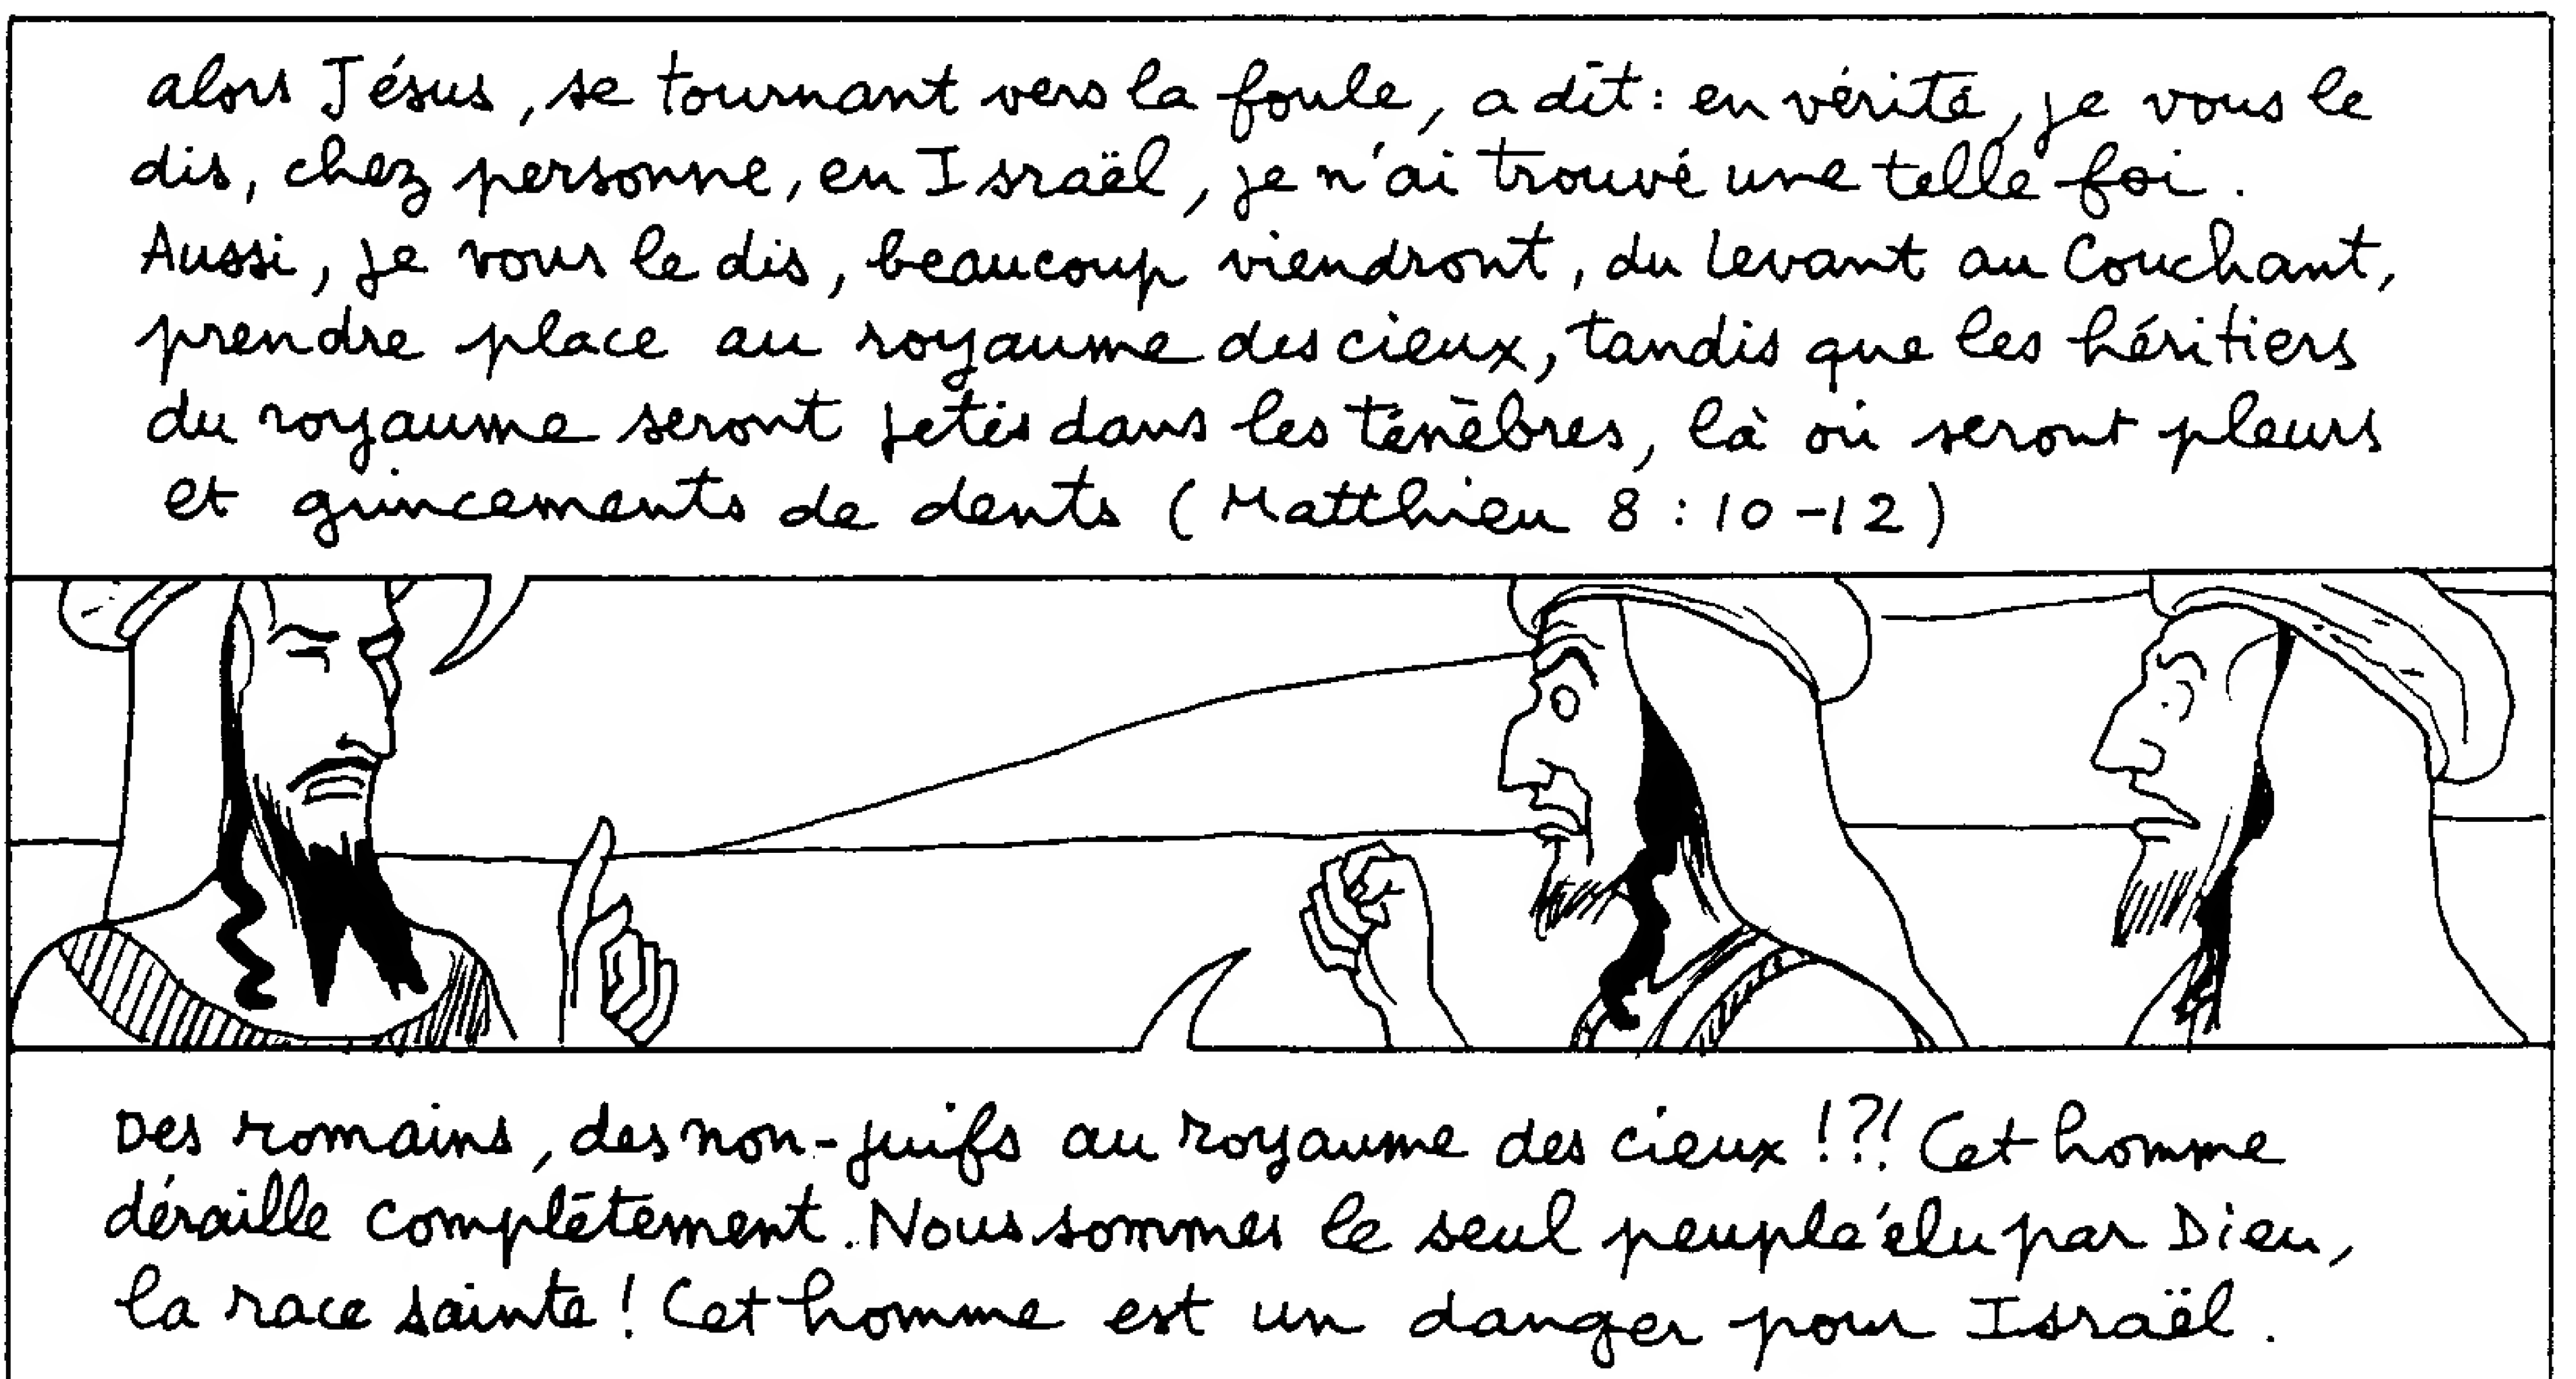 alors Jésus, se tournant vers la foule, a dit : en vérité, je vous le
dis, chez personne, en Israël, je n'ai trouvé une telle foi.
Aussi, je vous le dis, beaucoup viendront, du Levant au Couchant,
prendre place au royaume des cieux, tandis que les héritiers
du royaume seront jetés dans les ténèbres, là où seront pleurs
et grincements de dents (Matthieu 8 : 10-12)
Des romains, des non-juifs au royaume des cieux !?! Cet homme
déraille complètement. Nous sommes le seul peuple élu par Dieu,
la race sainte ! Cet homme est un danger pour Israël.